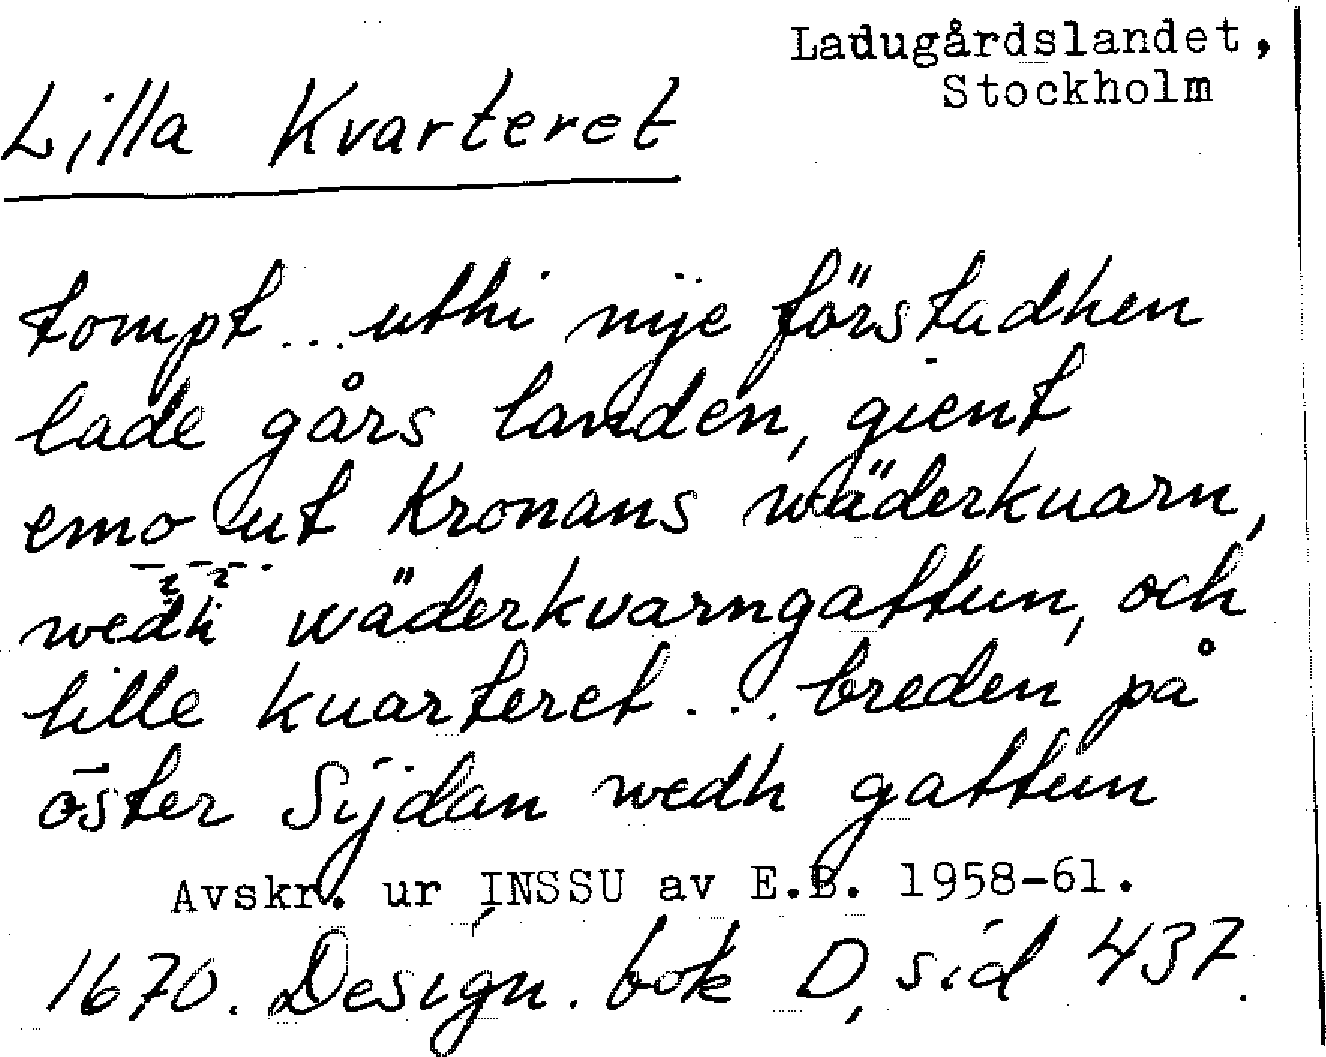 Ladugårdslandet,
Stockholm
Lilla Kvarteret
tompt... uthi nije förstadhen
lade gårs landen, gient
emo ut Kronans wäderkuarn,
wedh wäderkvarngattun, och
lille kuarteret... breden på
öster Sijdan wedh gattun
Avskr. ur INSSU av E.B. 1958-61.
1670. Design. bok D, sid 437.